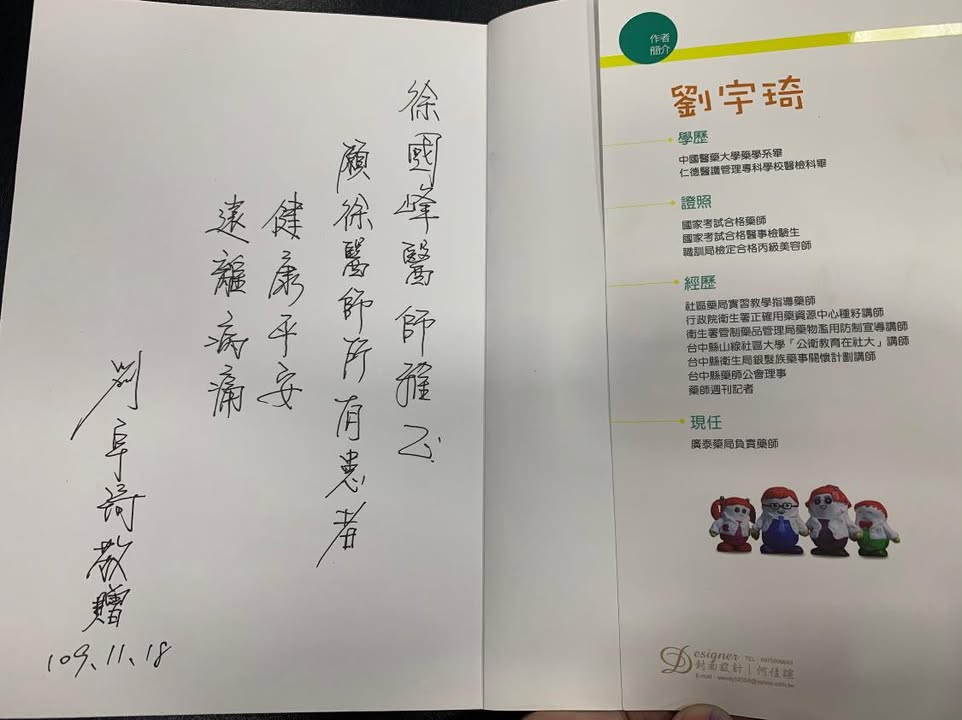 徐國峰醫師雅正
願徐醫師所有患者
健康平安
遠離病痛
劉宇琦敬贈
109.11.18
作者
簡介
劉宇琦
學歷
中國醫藥大學藥學系畢
仁德醫護管理專科學校醫檢科畢
證照
國家考試合格藥師
國家考試合格醫事檢驗生
職訓局檢定合格丙級美容師
經歷
社區藥局實習教學指導藥師
行政院衛生署正確用藥資源中心種籽講師
衛生署管制藥品管理局藥物濫用防制宣導講師
台中縣山線社區大學「公衛教育在社大」講師
台中縣衛生局銀髮族藥事關懷計劃講師
台中縣藥師公會理事
藥師週刊記者
現任
廣泰藥局負責藥師
Designer TEL
封面設計|何佳諠
E-mail